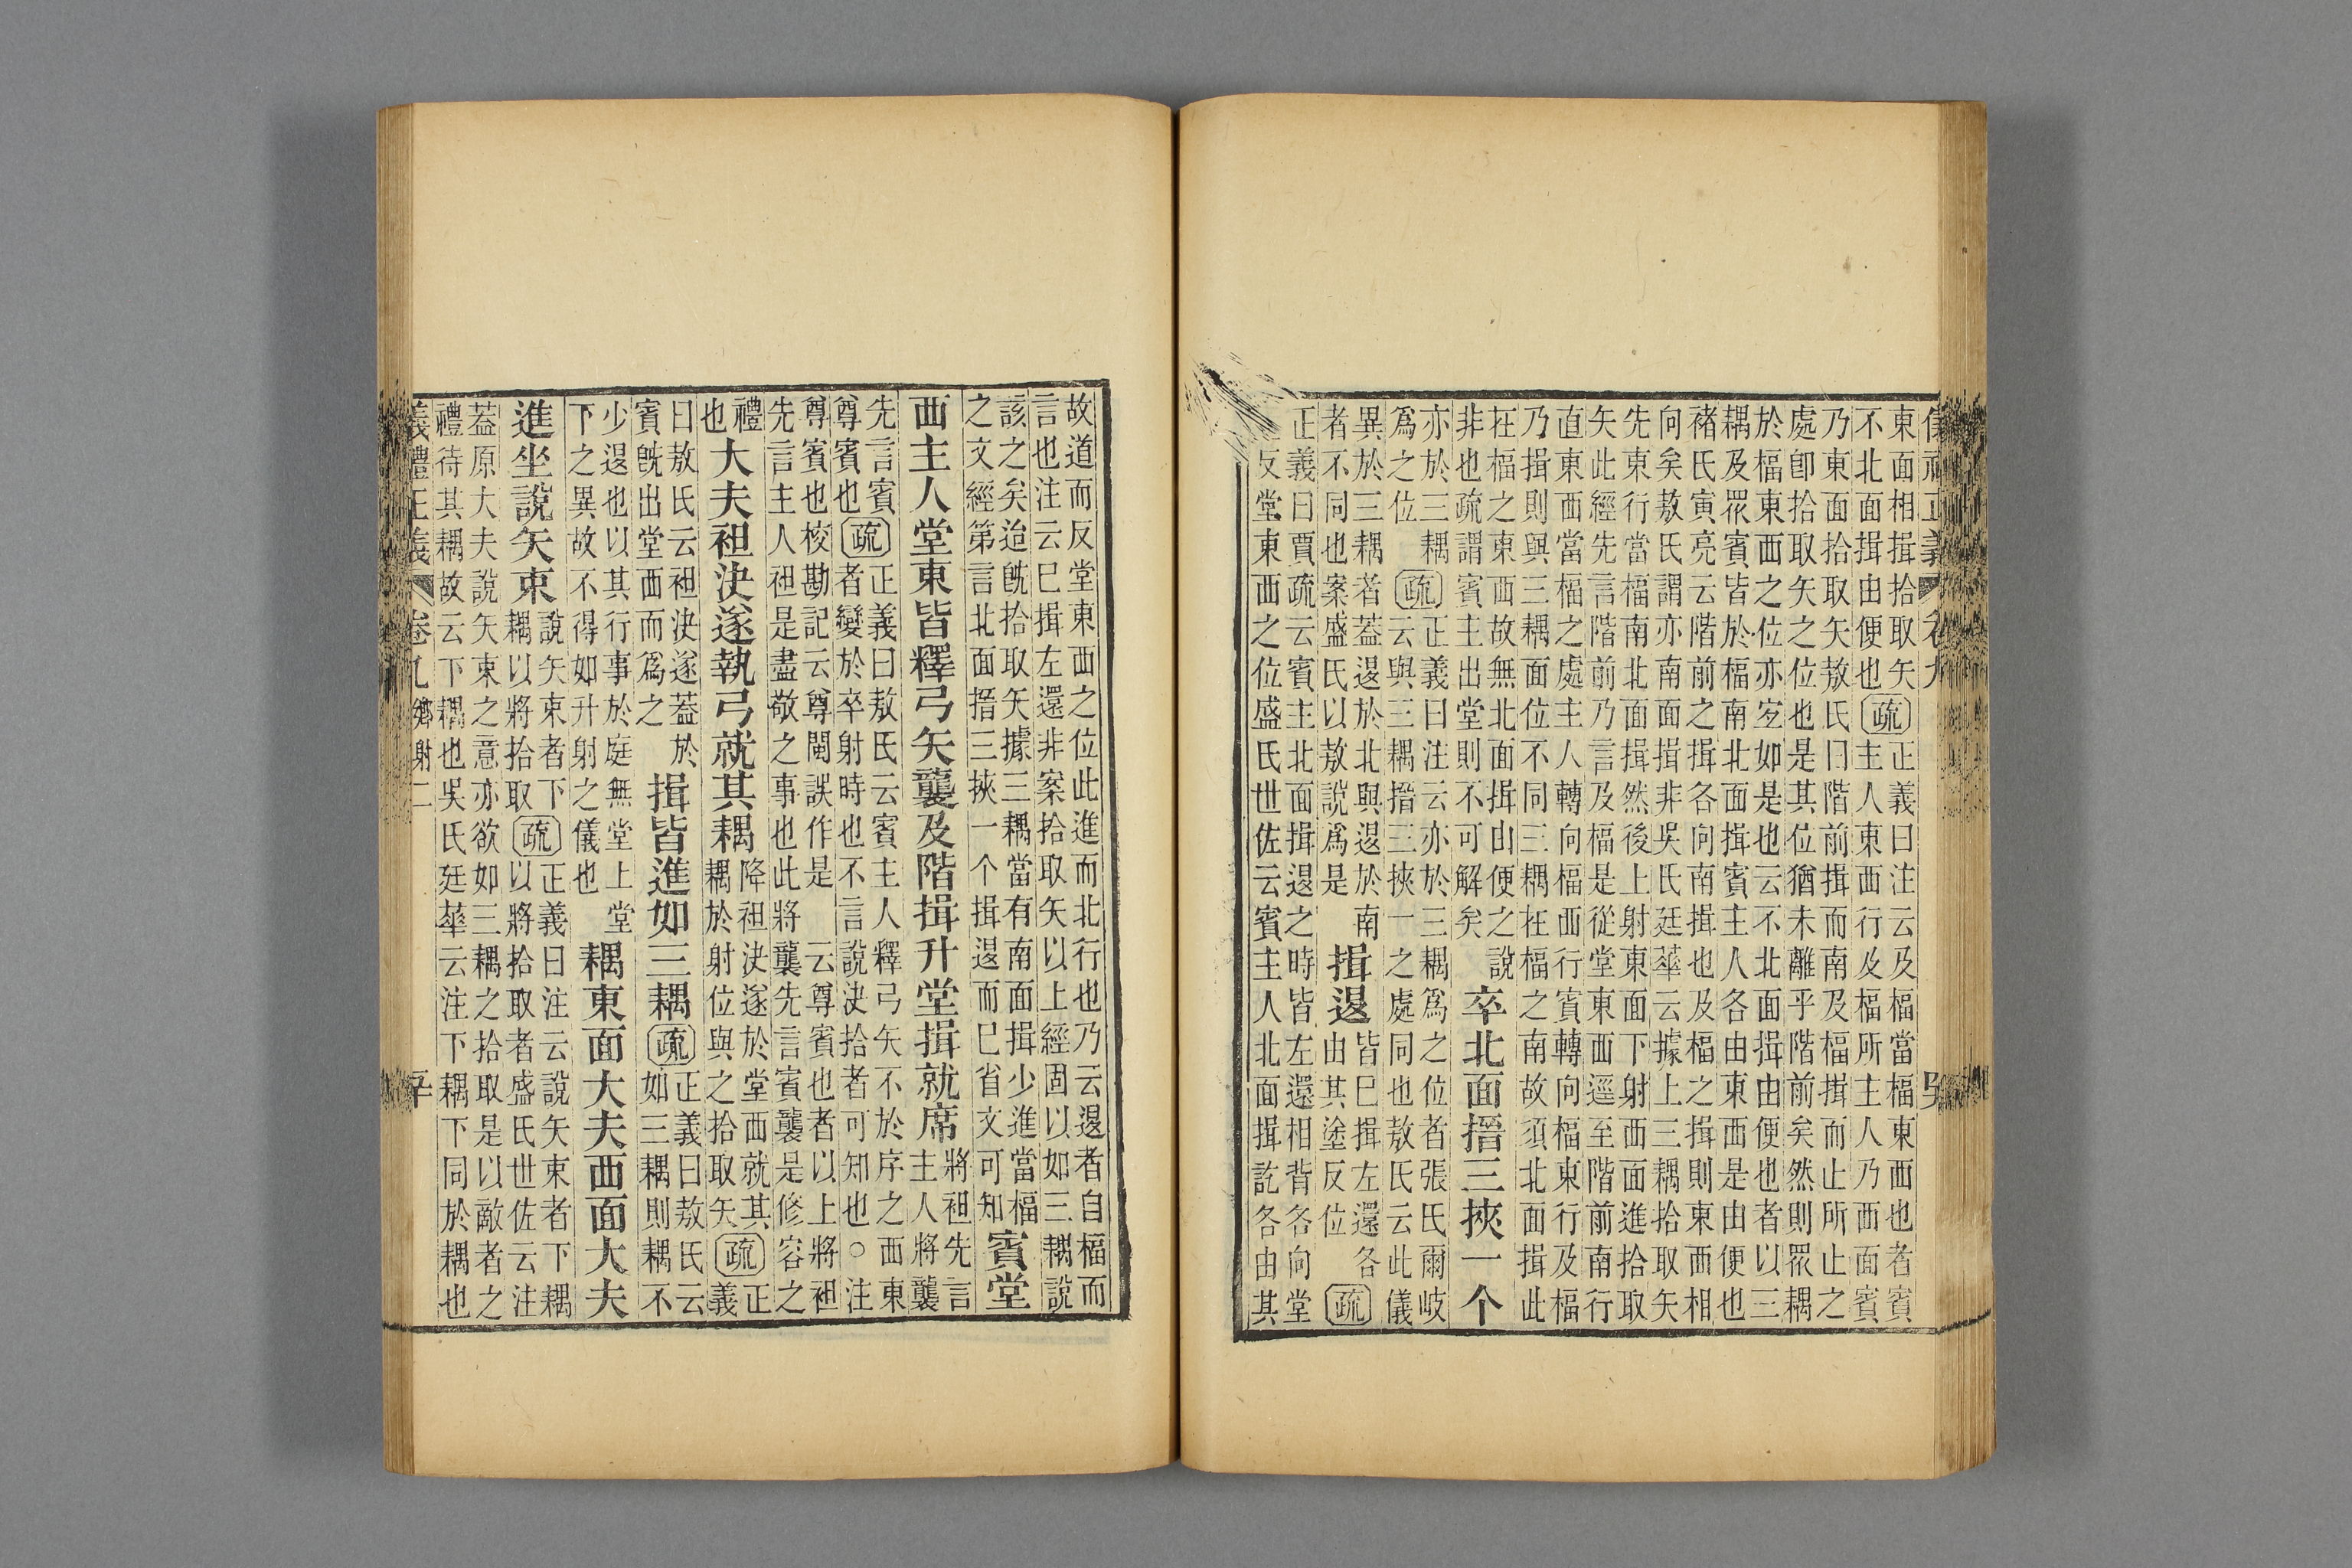 東面相揖拾取矢
不北面揖由便也
疏
正義曰注云及楅當楅東西也者賓
主人東西行及楅所主人乃西面賓
乃東面拾取矢敖氏曰階前揖而南及楅揖而止所止之
處卽拾取矢之位也是其位猶未離乎階前矣然則眾耦
於楅東西之位亦宐如是也云不北面揖由便也者以三
耦及眾賓皆於楅南北面揖賓主人各由東西是由便也
褚氏寅亮云階前之揖各向南揖也及楅之揖則東西相
向矣敖氏謂亦南面揖非吳氏廷華云據上三耦拾取矢
先東行當楅南北面揖然後上射東面下射西面進拾取
矢此經先言階前乃言及楅是從堂東西逕至階前南行
直東西當楅之處主人轉向楅西行賓轉向楅東行及楅
乃揖則與三耦面位不同三耦在楅之南故須北面揖此
在楅之東西故無北面揖由便之說
非也疏謂賓主出堂則不可解矣
卒北面搢三挾一个
亦於三耦
爲之位
疏
正義曰注云亦於三耦爲之位者張氏爾岐
云與三耦搢三挾一之處同也敖氏云此儀
異於三耦者蓋退於北與退於南
者不同也案盛氏以敖說爲是
揖退
皆已揖左還各
由其塗反位
疏
正義曰賈疏云賓主北面揖退之時皆左還相背各向堂
反堂東西之位盛氏世佐云賓主人北面揖訖各由其
故道而反堂東西之位此進而北行也乃云退者自楅而
言也注云已揖左還非案拾取矢以上經固以如三耦說
該之矣迨旣拾取矢據三耦當有南面揖少進當楅
之文經第言北面搢三挾一个揖退而已省文可知
賓堂
西主人堂東皆釋弓矢襲及階揖升堂揖就席
將袒先言
主人將襲
先言賓
尊賓也
疏
正義曰敖氏云賓主人釋弓矢不於序之西東
者變於卒射時也不言說決拾者可知也○注
尊賓也校勘記云尊閩誤作是　云尊賓也者以上將袒
先言主人袒是盡敬之事也此將襲先言賓襲是修容之
禮
也
大夫袒決遂執弓就其耦
降袒決遂於堂西就其
耦於射位與之拾取矢
疏
正
義
曰敖氏云袒決遂蓋於
賓旣出堂西而爲之
揖皆進如三耦
疏
正義曰敖氏云
如三耦則耦不
少退也以其行事於庭無堂上堂
下之異故不得如升射之儀也
耦東面大夫西面大夫
進坐說矢束
說矢束者下
耦以將拾取
疏
正義曰注云說矢束者下耦
以將拾取者盛氏世佐云注
蓋原大夫說矢束之意亦欲如三耦之拾取是以敵者之
禮待其耦故云下耦也吳氏廷華云注下耦下同於耦也
義禮正義
卷九鄉射二